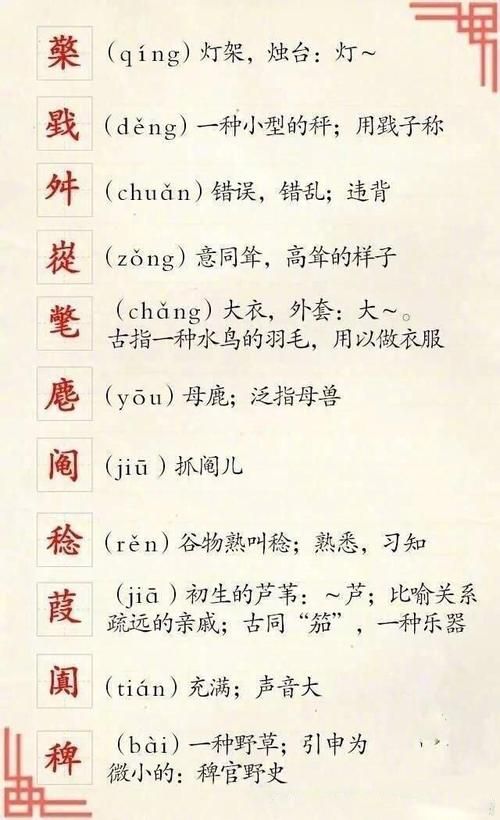 檠 (qíng)灯架，烛台：灯～
戥 (děng)一种小型的秤；用戥子称
舛 (chuǎn)错误，错乱；违背
嵸 (zǒng)意同耸，高耸的样子
氅 (chǎng)大衣，外套：大～。
古指一种水鸟的羽毛，用以做衣服
麀 (yōu)母鹿；泛指母兽
阄 (jiū)抓阄儿
稔 (rěn)谷物熟叫稔；熟悉，习知
葭 (jiā)初生的芦苇：～芦；比喻关系
疏远的亲戚；古同“笳”，一种乐器
阗 (tián)充满；声音大
稗 (bài)一种野草；引申为
微小的：稗官野史